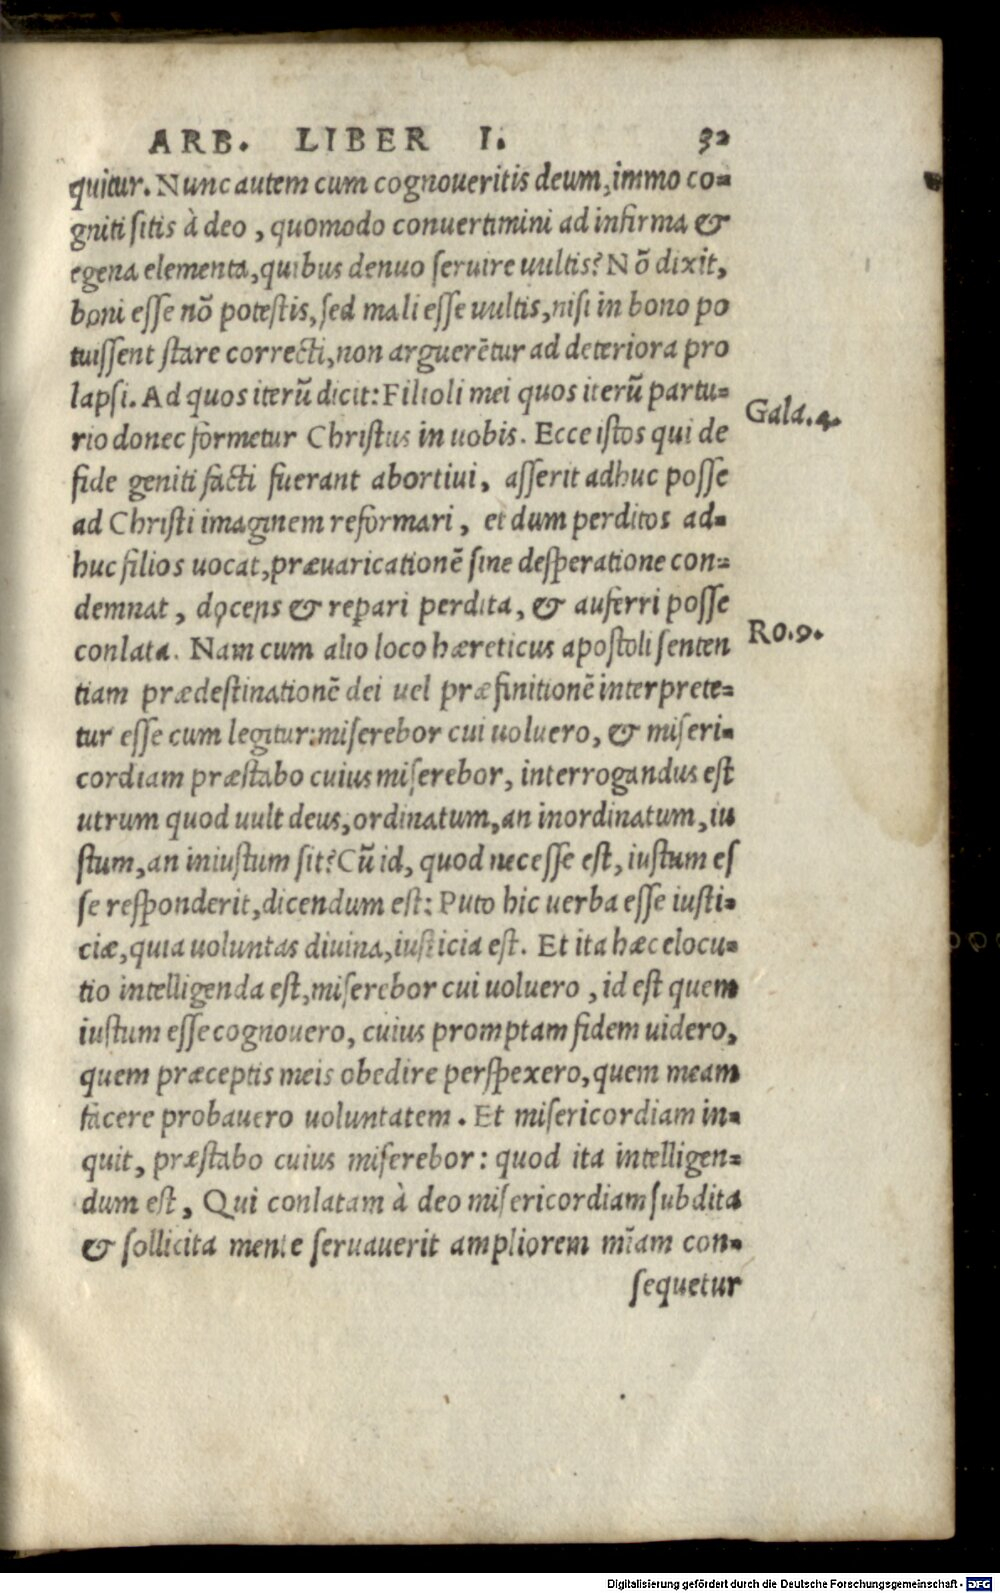 ARB. LIBER I. 32
quitur. Nunc autem cum cognoueritis deum, immo co-
gniti sitis à deo, quomodo conuertimini ad infirma &
egena elementa, quibus denuo seruire uultis? Nõ dixit,
boni esse nõ potestis, sed mali esse uultis, nisi in bono po
tuissent stare correcti, non arguerẽtur ad deteriora pro
lapsi. Ad quos iterũ dicit: Filioli mei quos iterũ partu-
Gala.4.
rio donec formetur Christus in uobis. Ecce istos qui de
fide geniti facti fuerant abortiui, asserit adhuc posse
ad Christi imaginem reformari, et dum perditos ad-
huc filios uocat, præuaricationẽ sine desperatione con-
demnat, docens & repari perdita, & auferri posse
Ro.9.
conlata. Nam cum alio loco hæreticus apostoli senten
tiam prædestinationẽ dei uel præfinitionẽ interprete-
tur esse cum legitur: miserebor cui uoluero, & miseri-
cordiam præstabo cuius miserebor, interrogandus est
utrum quod uult deus, ordinatum, an inordinatum, iu
stum, an iniustum sit? Cũ id, quod necesse est, iustum es
se responderit, dicendum est: Puto hic uerba esse iusti-
ciæ, quia uoluntas diuina, iusticia est. Et ita hæc elocu-
tio intelligenda est, miserebor cui uoluero, id est quem
iustum esse cognouero, cuius promptam fidem uidero,
quem præceptis meis obedire perspexero, quem meam
facere probauero uoluntatem. Et misericordiam in-
quit, præstabo cuius miserebor: quod ita intelligen-
dum est, Qui conlatam à deo misericordiam subdita
& sollicita mente seruauerit ampliorem mĩam con-
sequetur
Digitalisierung gefördert durch die Deutsche Forschungsgemeinschaft - DFG